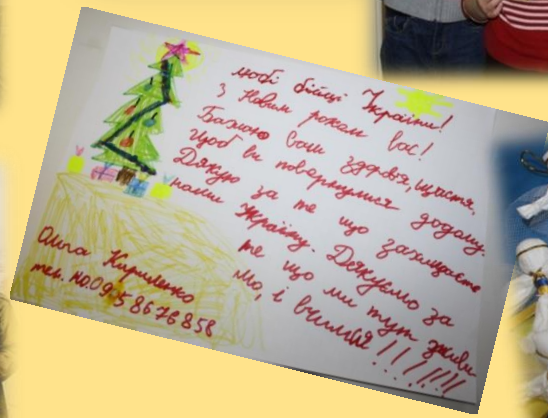 любі бійці України!
З Новим роком вас!
Бажаю вам здоровя, щастя,
щоб ви повернулися додому.
Дякую за те що захищаєте
нашу Україну. Дякуємо за
те що ми тут живе
мо, і вчимся!!!!!!!
Ольга Кириленко
тел. но 0958676858